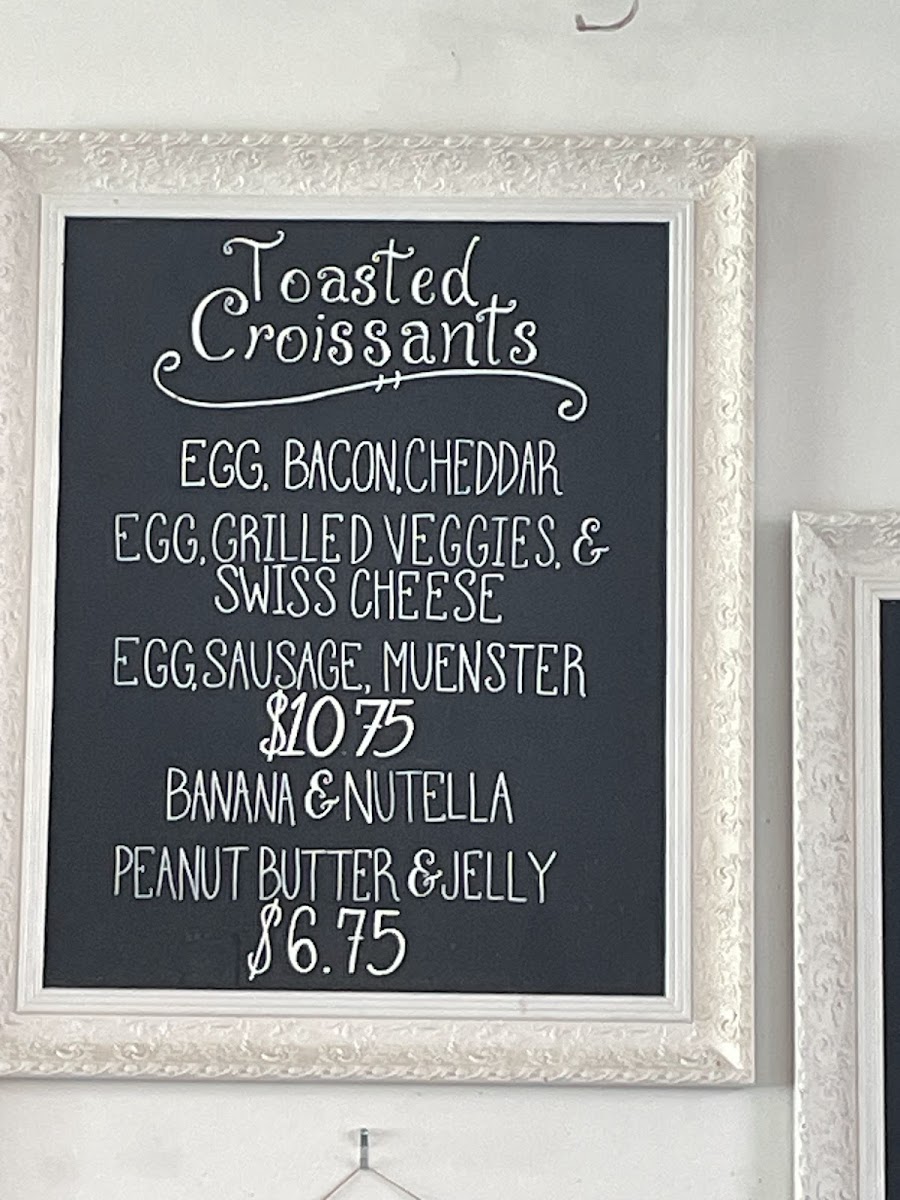 Toasted
Croissants
EGG, BACON, CHEDDAR
EGG, GRILLED VEGGIES, &
SWISS CHEESE
EGG, SAUSAGE, MUENSTER
$10.75
BANANA & NUTELLA
PEANUT BUTTER & JELLY
$6.75